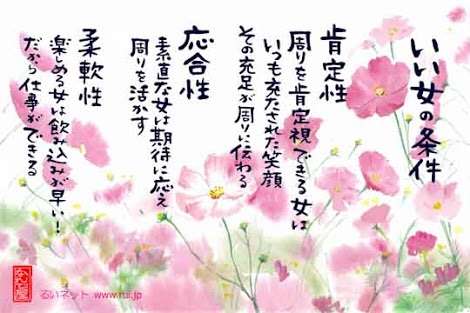 いい女の条件
肯定性
周りを肯定視できる女は
いつも充たされた笑顔
その充足が周りに伝わる
応合性
素直な女は期待に応え
周りを活かす
柔軟性
楽しめる女は飲み込みが早い！
だから仕事ができる
るいネット www.rui.jp